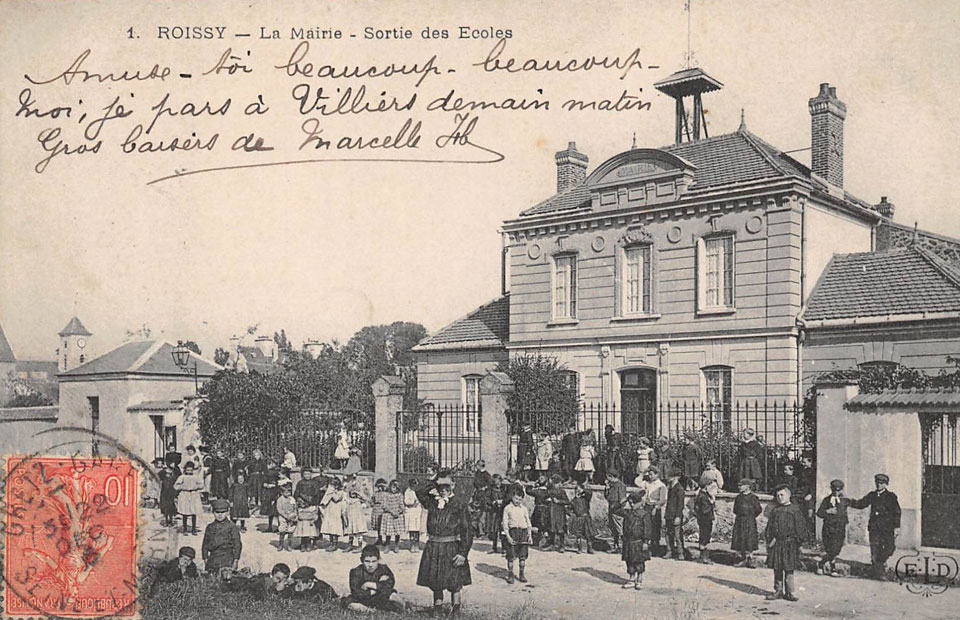 1. ROISSY — La Mairie - Sortie des Ecoles
Amuse-toi beaucoup-beaucoup-
Moi, je pars à Villiérs demain matin
Gros baisérs de Marcelle
MAIRIE
10
ELD